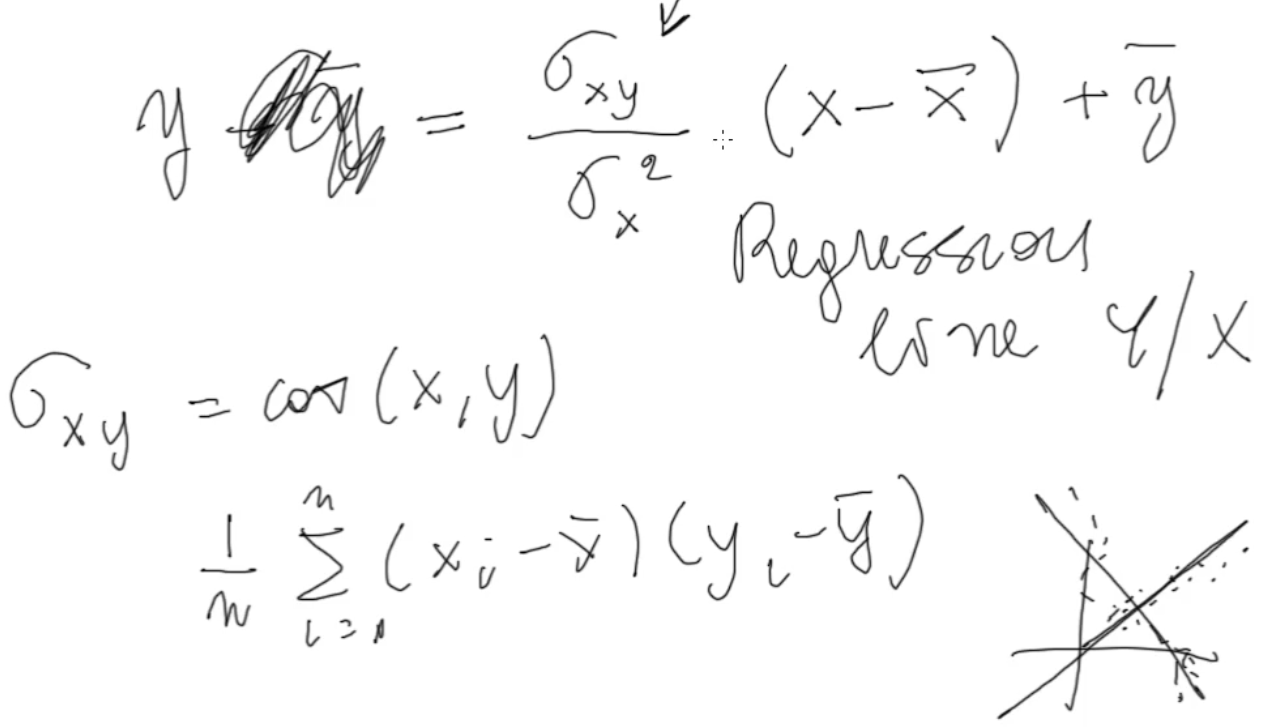 y = σxy / σx² · (x - x̄) + ȳ
Regression
line Y/X
σxy = cov(x, y)
1/n Σ i=1 n (xi - x̄)(yi - ȳ)